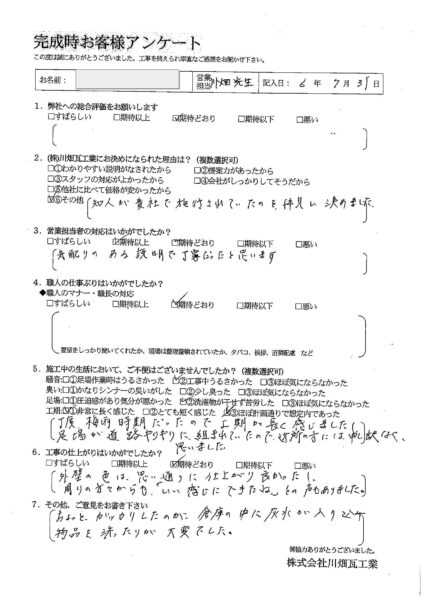 完成時お客様アンケート
この度は誠にありがとうございました。工事を終えられ率直なご感想をお聞かせ下さい。
お名前： 営業担当 川畑先生 記入日： 6 年 7 月 31 日
1．弊社への総合評価をお願いします
□すばらしい □期待以上 ☑期待どおり □期待以下 □悪い
2．(株)川畑瓦工業にお決めになられた理由は？（複数選択可）
□①わかりやすい説明がなされたから □②提案力があったから
□③スタッフの対応がよかったから □④会社がしっかりしてそうだから
□⑤他社に比べて価格が安かったから
☑⑥その他 知人が貴社で施行されていたのを拝見し決めました。
3．営業担当者の対応はいかがでしたか？
□すばらしい ☑期待以上 □期待どおり □期待以下 □悪い
気配りのある説明で丁寧だったと思います
4．職人の仕事ぶりはいかがでしたか？
◆職人のマナー・職長の対応
□すばらしい □期待以上 ☑期待どおり □期待以下 □悪い
要望をしっかり聞いてくれたか、現場は整理整頓されていたか、タバコ、挨拶、近隣配慮 など
5．施工中の生活において、ご不便はございませんでしたか？（複数選択可）
騒音:□①足場作業時はうるさかった ☑②工事中うるさかった □③ほぼ気にならなかった
臭い:□①かなりシンナーの臭いがした □②少し臭った □③ほぼ気にならなかった
足場:□①圧迫感があり気分が悪かった ☑②洗濯物が干せず苦労した □③ほぼ気にならなかった
工期:☑①非常に長く感じた □②とても短く感じた □③ほぼ計画通りで想定内であった
丁度 梅雨時期だったので工期が長く感じました
足場が道路ギリギリに組まれていたので近所の方には申し訳なく
思いました
6．工事の仕上がりはいかがでしたか？
□すばらしい □期待以上 ☑期待どおり □期待以下 □悪い
外壁の色は、思い通りに仕上がり良かったし、
周りの方々からも、「いい感じにできたね」との声もありました。
7．その他、ご意見をお書き下さい
ちょっと、ガッカリしたのが 倉庫の中に灰水が入り込み
物品を洗ったりが大変でした。
御協力ありがとうございました。
株式会社川畑瓦工業